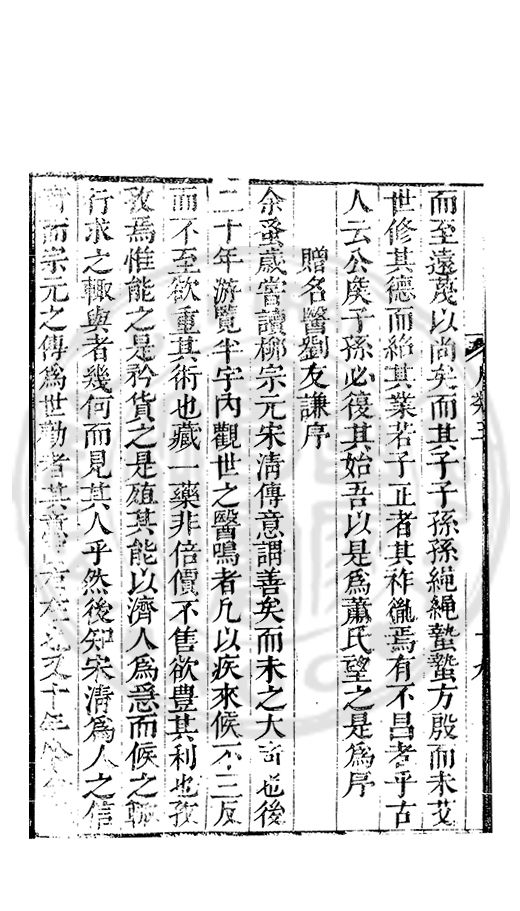 而至遠蔑以尚矣而其子子孫孫繩繩蟄蟄方殷而未艾
世修其德而絶其業若子正者其祚亂焉有不昌者乎古
人云公侯子孫必復其始吾以是為蕭氏望之是為序
贈名醫劉友謙序
余蚤歲嘗讀柳宗元宋清傳意謂善矣而未之大奇也後
二十年游覽半宇内觀世之醫鳴者凡以疾來候不三反
而不至欲重其術也藏一藥非倍價不售欲豊其利也孜
孜焉惟能之是矜貨之是殖其能以濟人為急而候之輒
行求之輒與者幾何而見其人乎然後知宋清為人之信
而宗元之傳為世勸者其意又十年